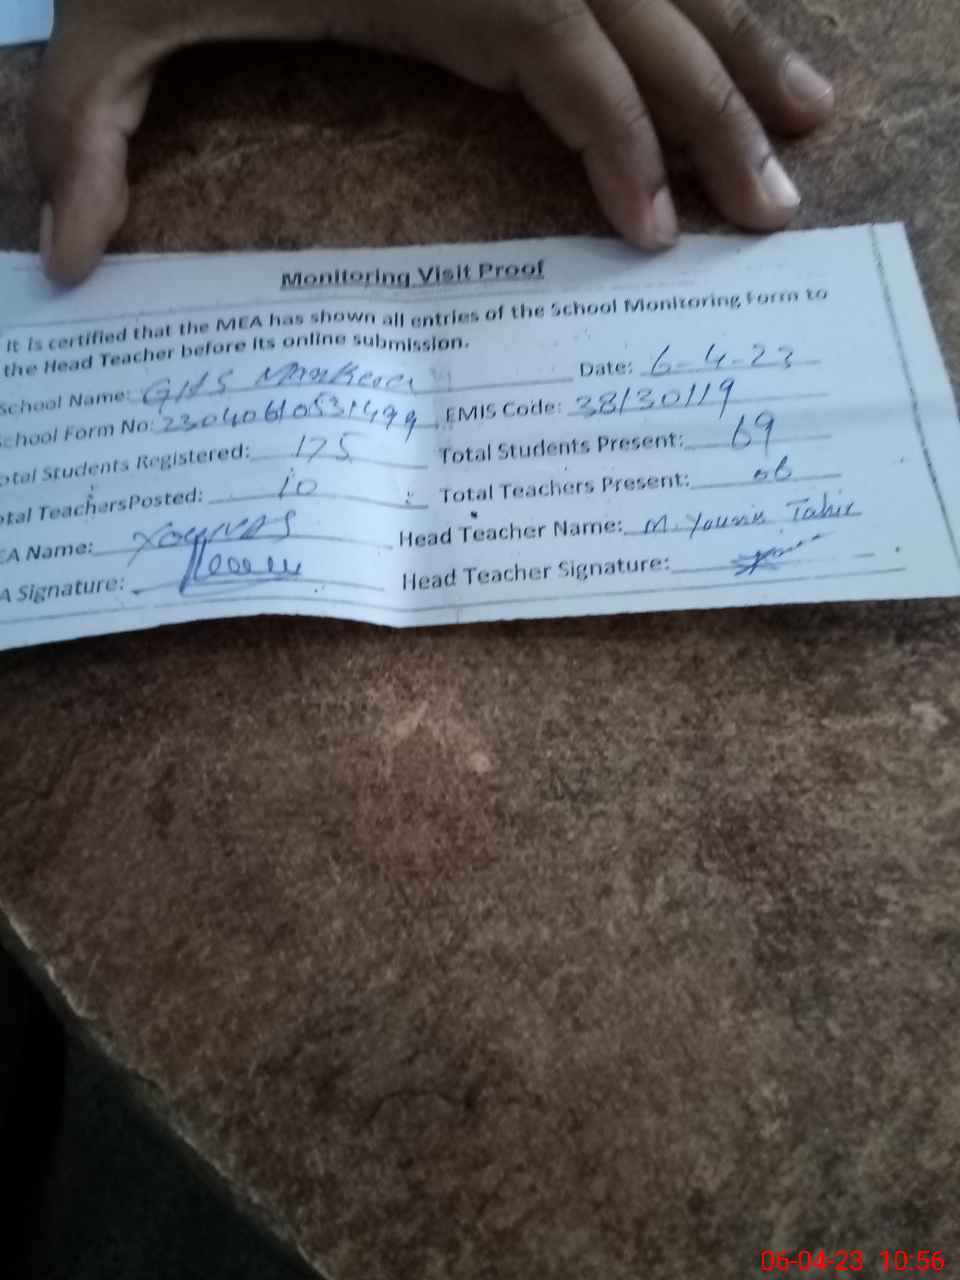 Monitoring Visit Proof
It is certified that the MEA has shown all entries of the School Monitoring Form to
the Head Teacher before its online submission.
School Name: GHS Mankera Date: 6-4-23
chool Form No: 23040610531499 EMIS Code: 38130119
otal Students Registered: 175 Total Students Present: 69
otal TeachersPosted: 10 Total Teachers Present: 06
EA Name: Younas Head Teacher Name: M. Younis Tahir
A Signature: Head Teacher Signature:
06-04-23 10:56